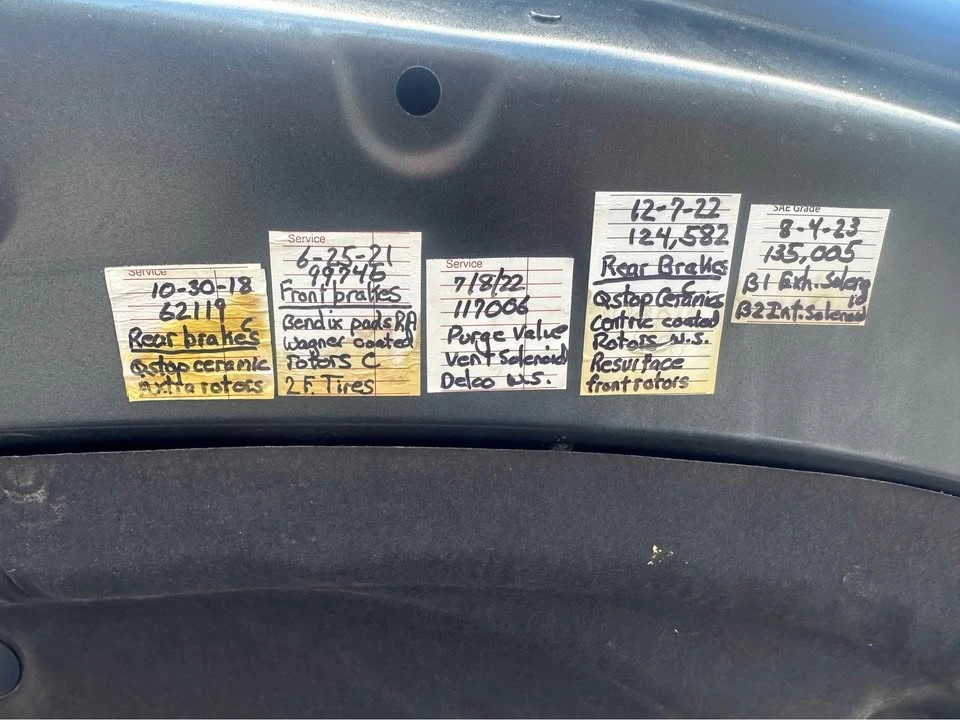 Service
10-30-18
62119
Rear brakes
Qstop ceramic
Extra rotors
Service
6-25-21
99746
Front brakes
Bendix pads RA
Wagner coated
rotors C
2 F. Tires
Service
7/8/22
117006
Purge Valve
Vent Solenoid
Delco W.S.
12-7-22
124,582
Rear Brakes
Qstop Ceramics
Centric coated
Rotors W.S.
Resurface
front rotors
SAE Grade
8-4-23
135,005
B1 Exh. Soleno
id
B2 Int. Solenoid